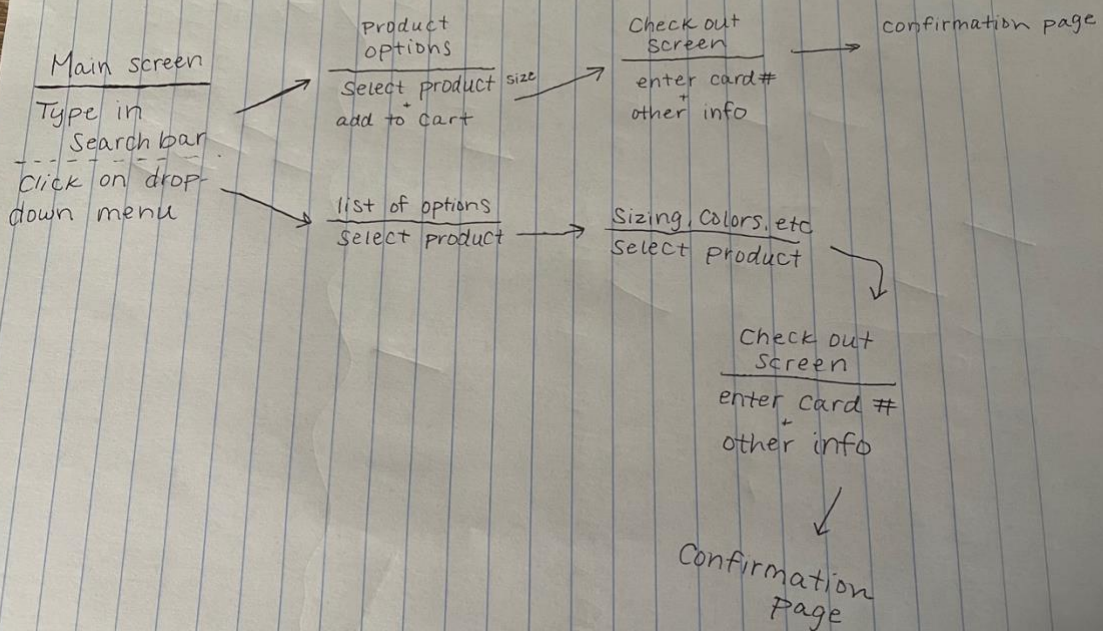 Main screen
Type in
Search bar
Click on drop-
down menu
product
options
select product size
+
add to cart
Check out
screen
enter card #
+
other info
confirmation page
list of options
select product
Sizing, colors, etc
select product
Check out
screen
enter card #
+
other info
Confirmation
page